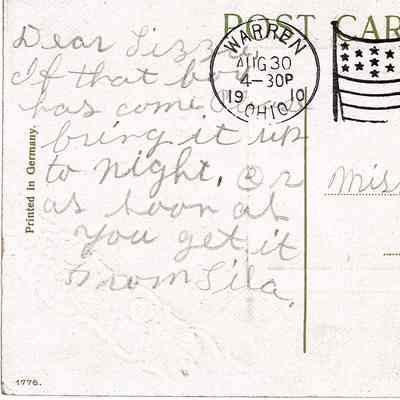 POST CAR
WARREN
AUG 30
4-30P
19 10
OHIO
Dear Lizzie
If that box
has come
bring it up
to night, Or
as soon as
you get it
From Lila.
Mis
Printed in Germany.
1776.